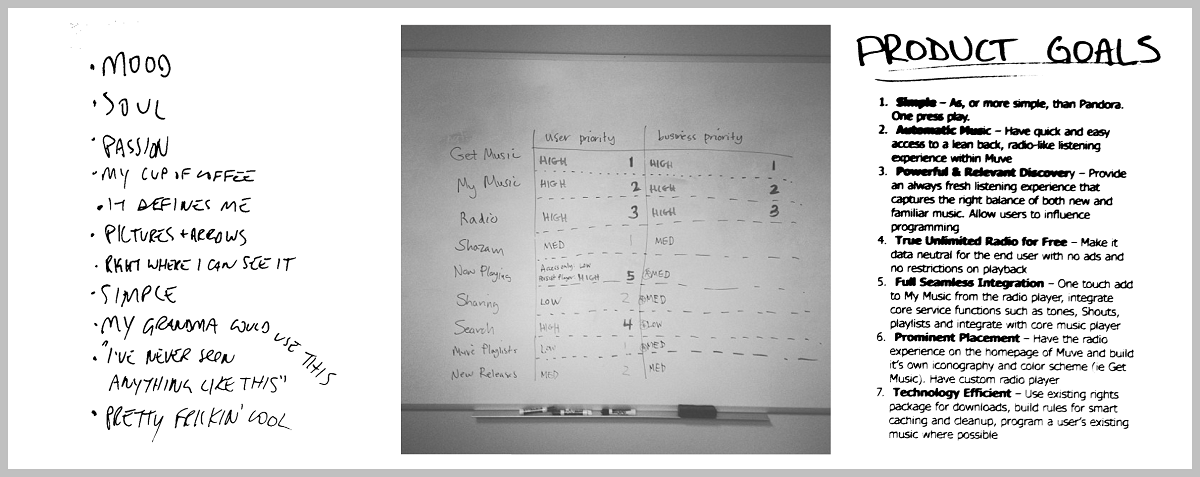 • MOOD
• SOUL
• PASSION
• MY CUP OF COFFEE
• IT DEFINES ME
• PICTURES + ARROWS
• RIGHT WHERE I CAN SEE IT
• SIMPLE
• MY GRANDMA COULD USE THIS
• "I'VE NEVER SEEN
ANYTHING LIKE THIS"
• PRETTY FRICKIN' COOL
user priority business priority
Get Music HIGH 1 HIGH 1
My Music HIGH 2 HIGH 2
Radio HIGH 3 HIGH 3
Shazam MED 1 MED
Now Playing Access only: LOW
Player HIGH 5 MED
Sharing LOW 2 MED
Search HIGH 4 LOW
Music Playlists LOW 1 MED
New Releases MED 2 MED
PRODUCT GOALS
1. Simple – As, or more simple, than Pandora.
One press play.
2. Automatic Music – Have quick and easy
access to a lean back, radio-like listening
experience within Muve
3. Powerful & Relevant Discovery – Provide
an always fresh listening experience that
captures the right balance of both new and
familiar music. Allow users to influence
programming
4. True Unlimited Radio for Free – Make it
data neutral for the end user with no ads and
no restrictions on playback
5. Full Seamless Integration – One touch add
to My Music from the radio player, integrate
core service functions such as tones, Shouts,
playlists and integrate with core music player
6. Prominent Placement – Have the radio
experience on the homepage of Muve and build
it's own iconography and color scheme (ie Get
Music). Have custom radio player
7. Technology Efficient – Use existing rights
package for downloads, build rules for smart
caching and cleanup, program a user's existing
music where possible